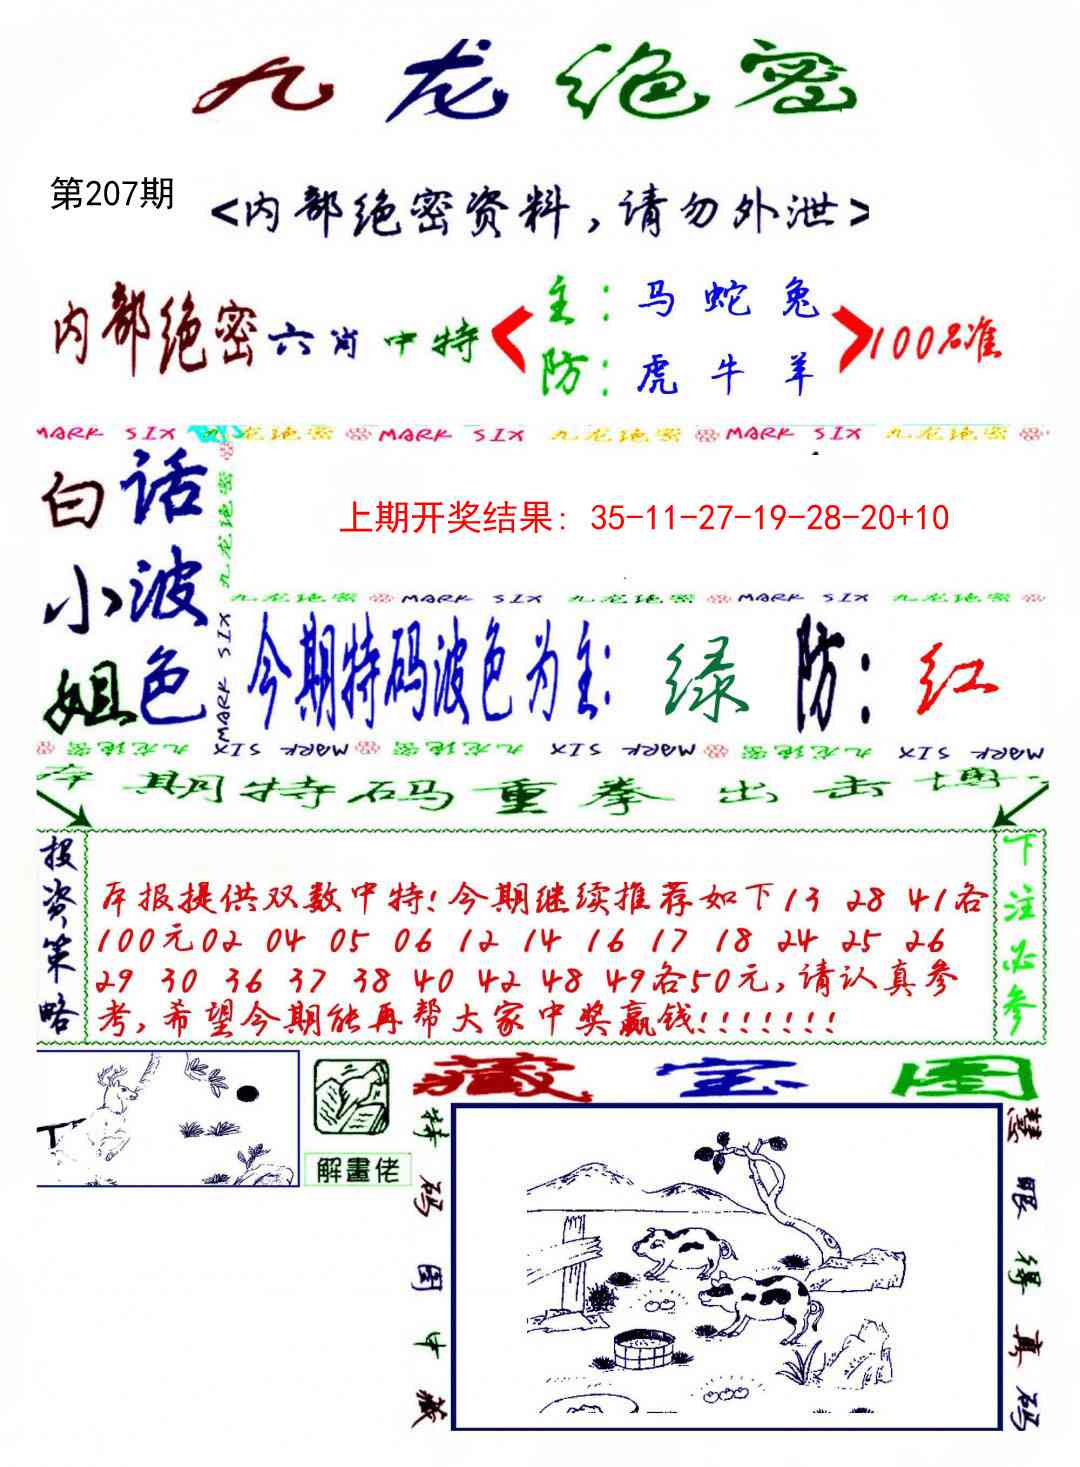 九龙绝密
第207期
<内部绝密资料,请勿外泄>
内部绝密六肖中特
主:马 蛇 兔
防:虎 牛 羊
100%准
MARK SIX 九龙绝密 MARK SIX 九龙绝密 MARK SIX 九龙绝密
白小姐
话波色
九龙绝密
MARK SIX
上期开奖结果: 35-11-27-19-28-20+10
九龙绝密 MARK SIX 九龙绝密 MARK SIX 九龙绝密
今期特码波色为主: 绿 防: 红
九龙绝密 MARK SIX 九龙绝密 MARK SIX 九龙绝密 MARK SIX
本期特码重拳出击博
投资策略
本报提供双数中特!今期继续推荐如下13 28 41各
100元02 04 05 06 12 14 16 17 18 24 25 26
29 30 36 37 38 40 42 48 49各50元,请认真参
考,希望今期能再帮大家中奖赢钱!!!!!!!
下注必参
解畫佬
藏宝图
特码图中藏
慧眼得真码